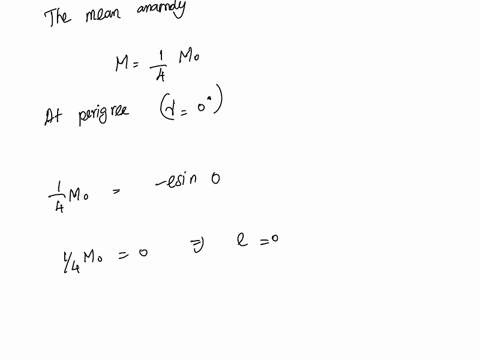 The mean anamoly
M = 1/4 M₀
At perigree (γ = 0°)
1/4 M₀ = -esin 0
1/4 M₀ = 0 ⇒ e = 0